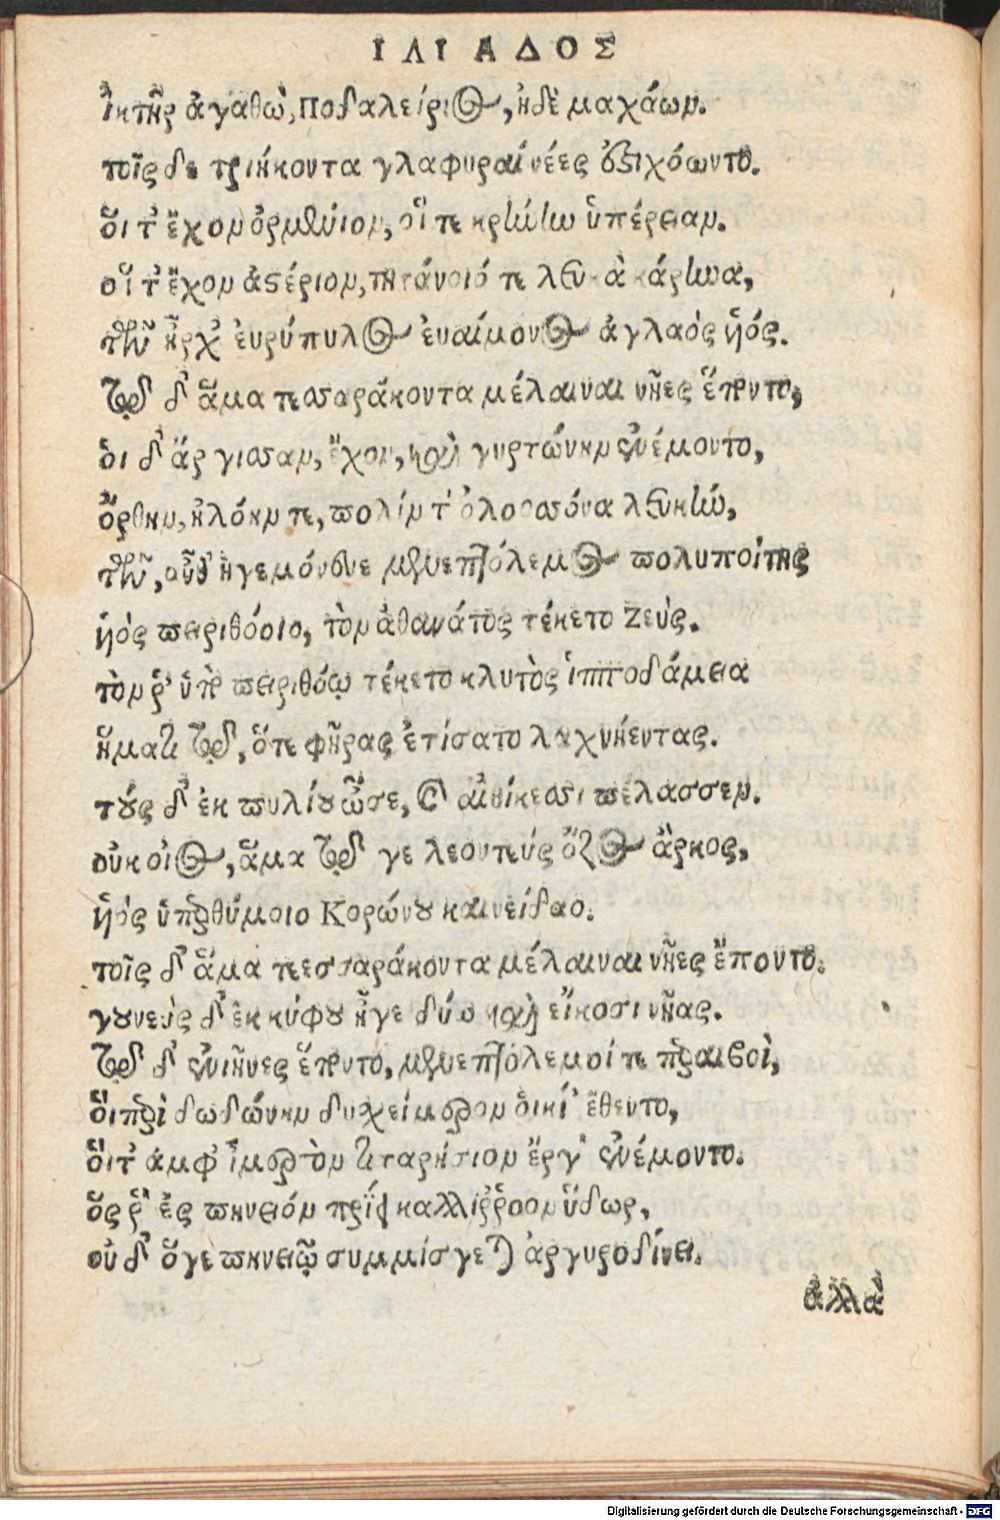 ΙΛΙΑΔΟΣ
ἰητῆρ ἀγαθὼ, Ποδαλείριος, ἠδὲ μαχάων.
τοῖς δὲ τριήκοντα γλαφυραί νέες ἐστιχόωντο.
ὅι τ' ἔχον ὀρμένιον, οἵ τε κρήνην ὑπέρειαν.
οἵ τ' ἔχον ἀστέριον, τιτάνοιό τε λευκὰ κάρηνα,
τῶν ἦρχ' ἐυρύπυλος ἐυαίμονος ἀγλαὸς ἡός.
τῷ δ' ἅμα τεσσαράκοντα μέλαιναι νῆες ἕποντο,
ὁι δ' ἄργισσαν, ἔχον, καὶ γυρτώνην ἐνέμοντο,
ὄρθην, ἠλόνην τε, πολίν τ' ὀλοοσσόνα λευκήν,
τῶν, αὖθ' ἡγεμόνευε μενεπτόλεμος πολυποίτης
ἡός πειριθόοιο, τὸν ἀθανάτος τέκετο Ζεύς.
τὸν ῥ' ὑπὸ πειριθόῳ τέκετο κλυτὸς ἱπποδάμεια
ἤματι τῷ, ὅτε φῆρας ἐτίσατο λαχνήεντας.
τούς δ' ἐκ πυλίου ὦσε, καὶ αἰθίκεσσι πέλασσεν.
οὐκ οἶος, ἅμα τῷ γε λεοντεύς ὄζος ἄρκος,
ἡός ὑπερθύμοιο Κορώνου καινείδαο.
τοῖς δ' ἅμα τεεσσαράκοντα μέλαιναι νῆες ἕποντο.
γουνεὺς δ' ἐκ κύφου ἦγε δύο καὶ εἴκοσι νῆας.
τῷ δ' ἐνιῆνες ἕποντο, μενεπτόλεμοί τε περαιβοὶ,
ὅι περὶ δωδώνην δυσχείμερον ὀικί' ἔθεντο,
ὅι τ' ἀμφ' ἱμερτὸν τιταρήσιον ἔργ' ἐνέμοντο.
ὅς ῥ' ἐς πηνειόν προΐει καλλίρροον ὕδωρ,
οὐ δ' ὅγε πηνειῷ συμμίσγεται ἀργυροδίνει.
ἀλλὰ
Digitalisierung gefördert durch die Deutsche Forschungsgemeinschaft - DFG